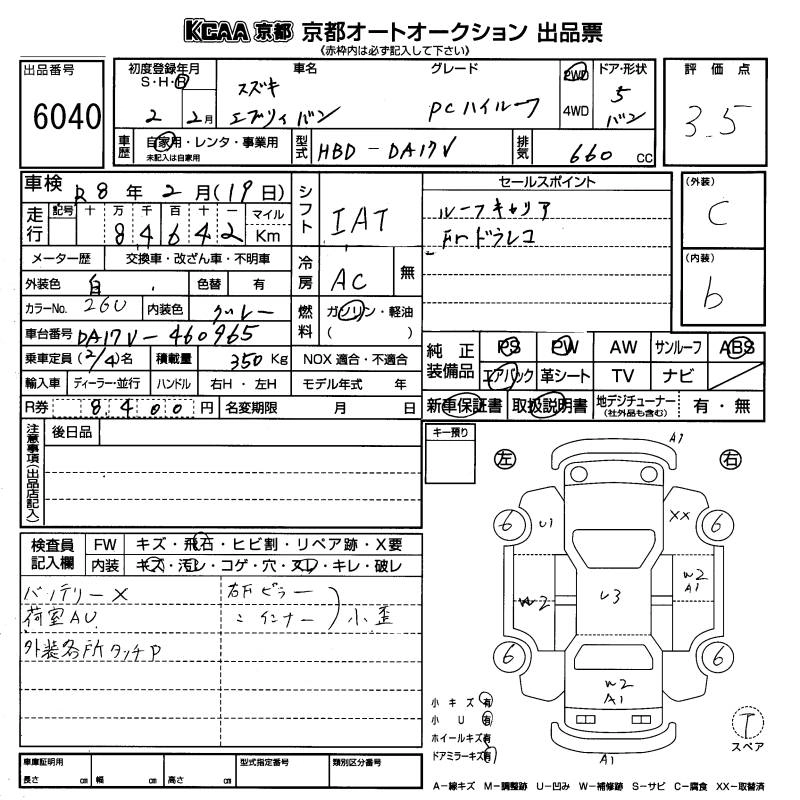 KCAA 京都 京都オートオークション 出品票
(赤枠内は必ず記入して下さい)
出品番号
6040
初度登録年月
S・H・R
2 2月
車名
スズキ
エブリィバン
グレード
PCハイルーフ
2WD
4WD
ドア・形状
5
バン
評価点
3.5
車歴
自家用・レンタ・事業用
未記入は自家用
型式
HBD-DA17V
排気
660 CC
車検 R8年2月(19日)
走行
記号 十 万 千 百 十 一 マイル
8 4 6 4 2 Km
メーター歴 交換車・改ざん車・不明車
外装色 白 色替 有
カラーNo. 26U 内装色 グレー
車台番号 DA17V-460965
乗車定員 (2/4)名 積載量 350 Kg
輸入車 ディーラー・並行 ハンドル 右H・左H
R券 8,400円 名変期限 月 日
シフト IAT
冷房 AC 無
燃料 ガソリン・軽油
( )
NOX 適合・不適合
モデル年式 年
セールスポイント
ルーフキャリア
Frドラレコ
(外装)
C
(内装)
b
純正装備品
PS PW AW サンルーフ ABS
エアバック 革シート TV ナビ
新車保証書 取扱説明書 地デジチューナー (社外品も含む) 有・無
注意事項(出品店記入)
後日品
キー預り
検査員記入欄
FW キズ・飛石・ヒビ割・リペア跡・X要
内装 キズ・汚レ・コゲ・穴・スレ・キレ・破レ
バッテリーX
荷室AU
外装各所タッチP
右Fピラー
〃インナー
小歪
左
右
A1
6
U1
XX
6
W2
U3
W2
A1
6
6
W2
A1
A1
小キズ 有
小U 有
ホイールキズ 有
ドアミラーキズ 有
T
スペア
車庫証明用
長さ cm 幅 cm 高さ cm
型式指定番号
類別区分番号
A-線キズ M-調整跡 U-凹み W-補修跡 S-サビ C-腐食 XX-取替済